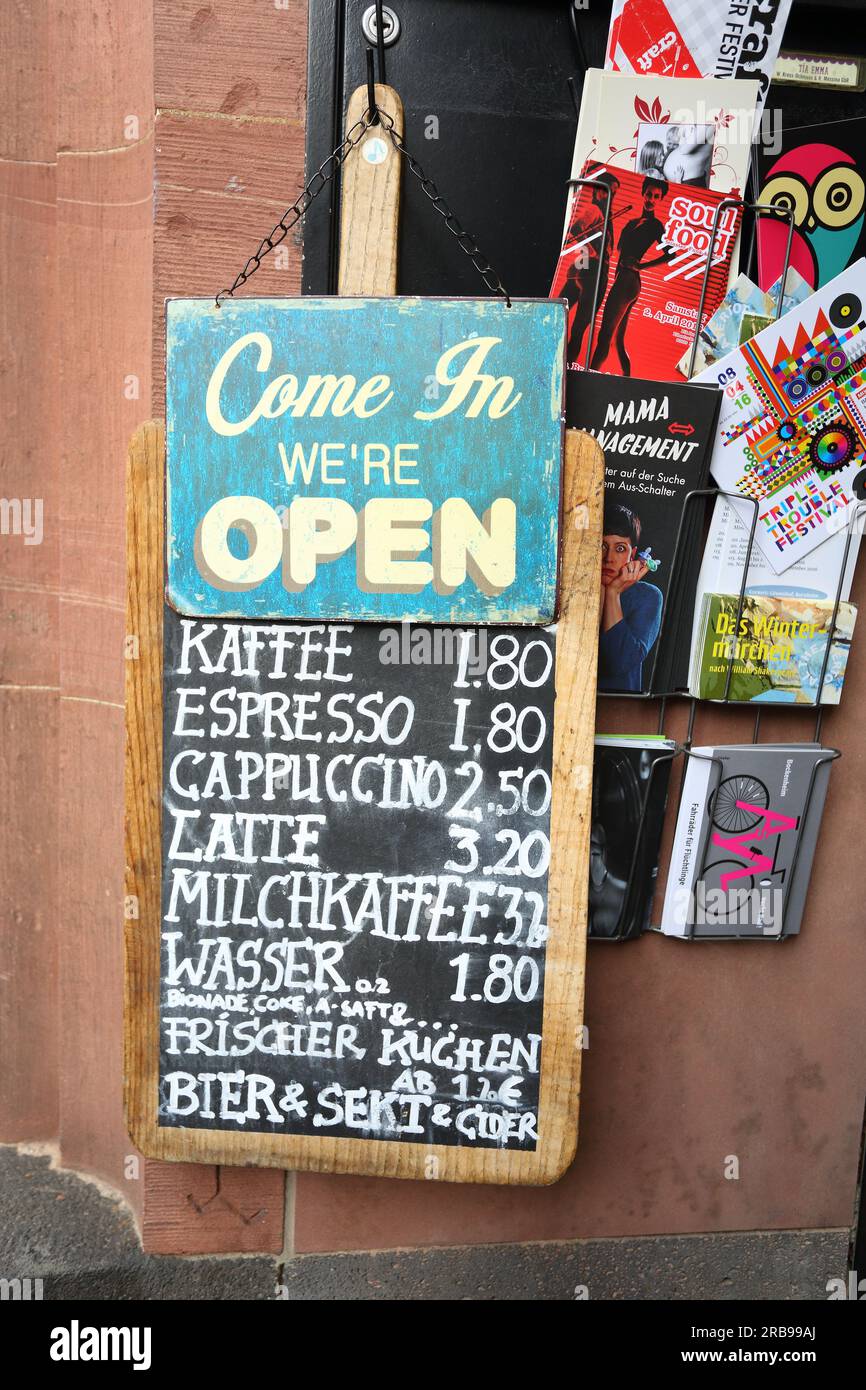 Come In
WE'RE
OPEN
KAFFEE 1.80
ESPRESSO 1.80
CAPPUCCINO 2.50
LATTE 3.20
MILCHKAFFEE 3.2
WASSER 0.2 1.80
BIONADE, COKE, A-SAFT & ....
FRISCHER KUCHEN
AB 1.20€
BIER & SEKT & CIDER
craft
ER FESTIV
TÍA EMMA
soul
food
Samstag
2. April
MAMA
MANAGEMENT
auf der Suche
Aus-Schalter
08
04
16
TRIPLE
TROUBLE
FESTIVAL
Das Winter-
märchen
nach William Shakespeare
Bockenheim
Fahrräder für Flüchtlinge
alamy
Image ID: 2RB99AJ
www.alamy.com